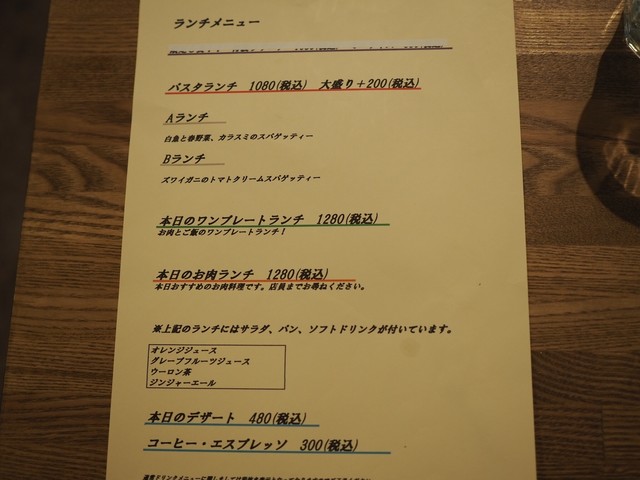 ランチメニュー
パスタランチ 1080(税込) 大盛り＋200(税込)
Aランチ
白魚と春野菜、カラスミのスパゲッティー
Bランチ
ズワイガニのトマトクリームスパゲッティー
本日のワンプレートランチ 1280(税込)
お肉とご飯のワンプレートランチ！
本日のお肉ランチ 1280(税込)
本日おすすめのお肉料理です。店員までお尋ねください。
※上記のランチにはサラダ、パン、ソフトドリンクが付いています。
オレンジジュース
グレープフルーツジュース
ウーロン茶
ジンジャーエール
本日のデザート 480(税込)
コーヒー・エスプレッソ 300(税込)